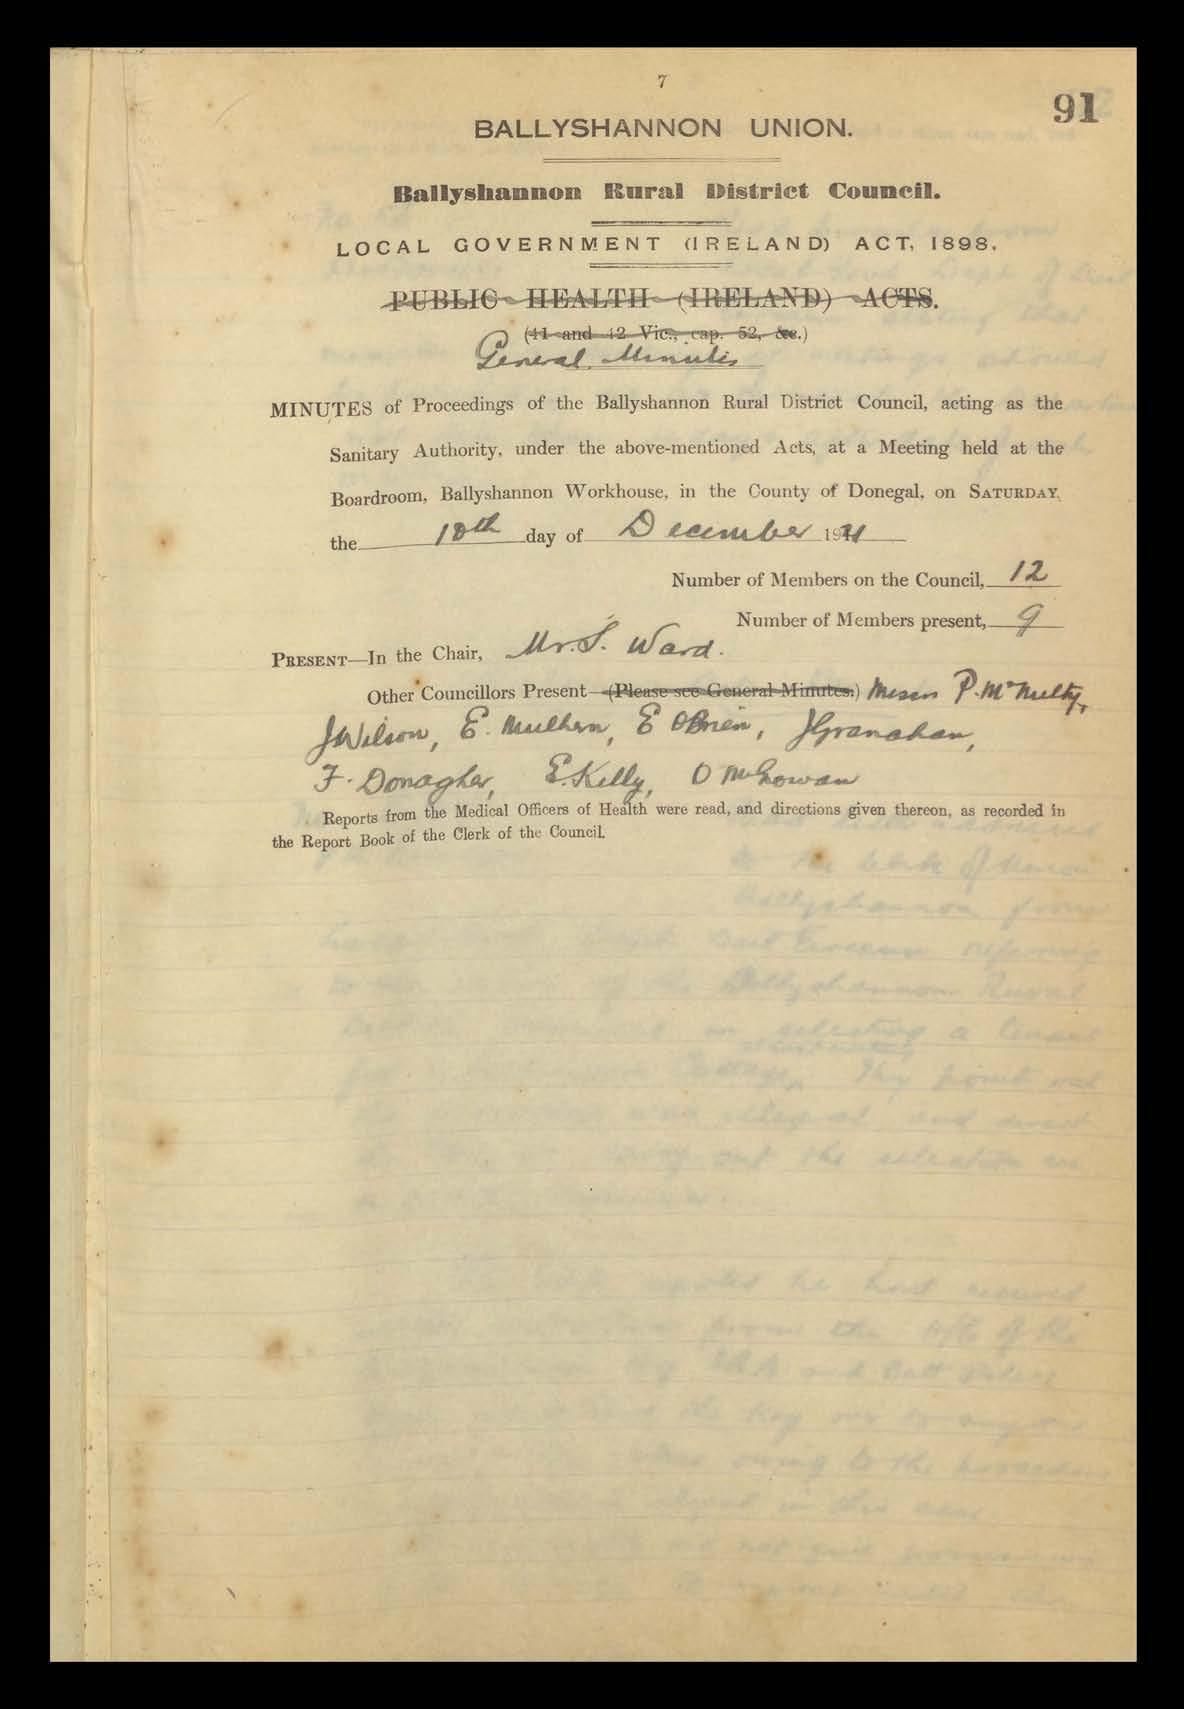 7
91
BALLYSHANNON UNION.
Ballyshannon Rural District Council.
LOCAL GOVERNMENT (IRELAND) ACT, 1898.
PUBLIC HEALTH (IRELAND) ACTS.
(41 and 42 Vic., cap. 52, &c.)
General Minutes
MINUTES of Proceedings of the Ballyshannon Rural District Council, acting as the
Sanitary Authority, under the above-mentioned Acts, at a Meeting held at the
Boardroom, Ballyshannon Workhouse, in the County of Donegal, on SATURDAY,
the 10th day of December 1921
Number of Members on the Council, 12
Number of Members present, 9
PRESENT—In the Chair, Mr. S. Ward.
Other Councillors Present—(Please see General Minutes.) Messrs P. McNulty,
J Wilson, E. Mulhern, E O'Brien, J Granahan,
F. Donagher, E. Kelly, O McGowan
Reports from the Medical Officers of Health were read, and directions given thereon, as recorded in
the Report Book of the Clerk of the Council.